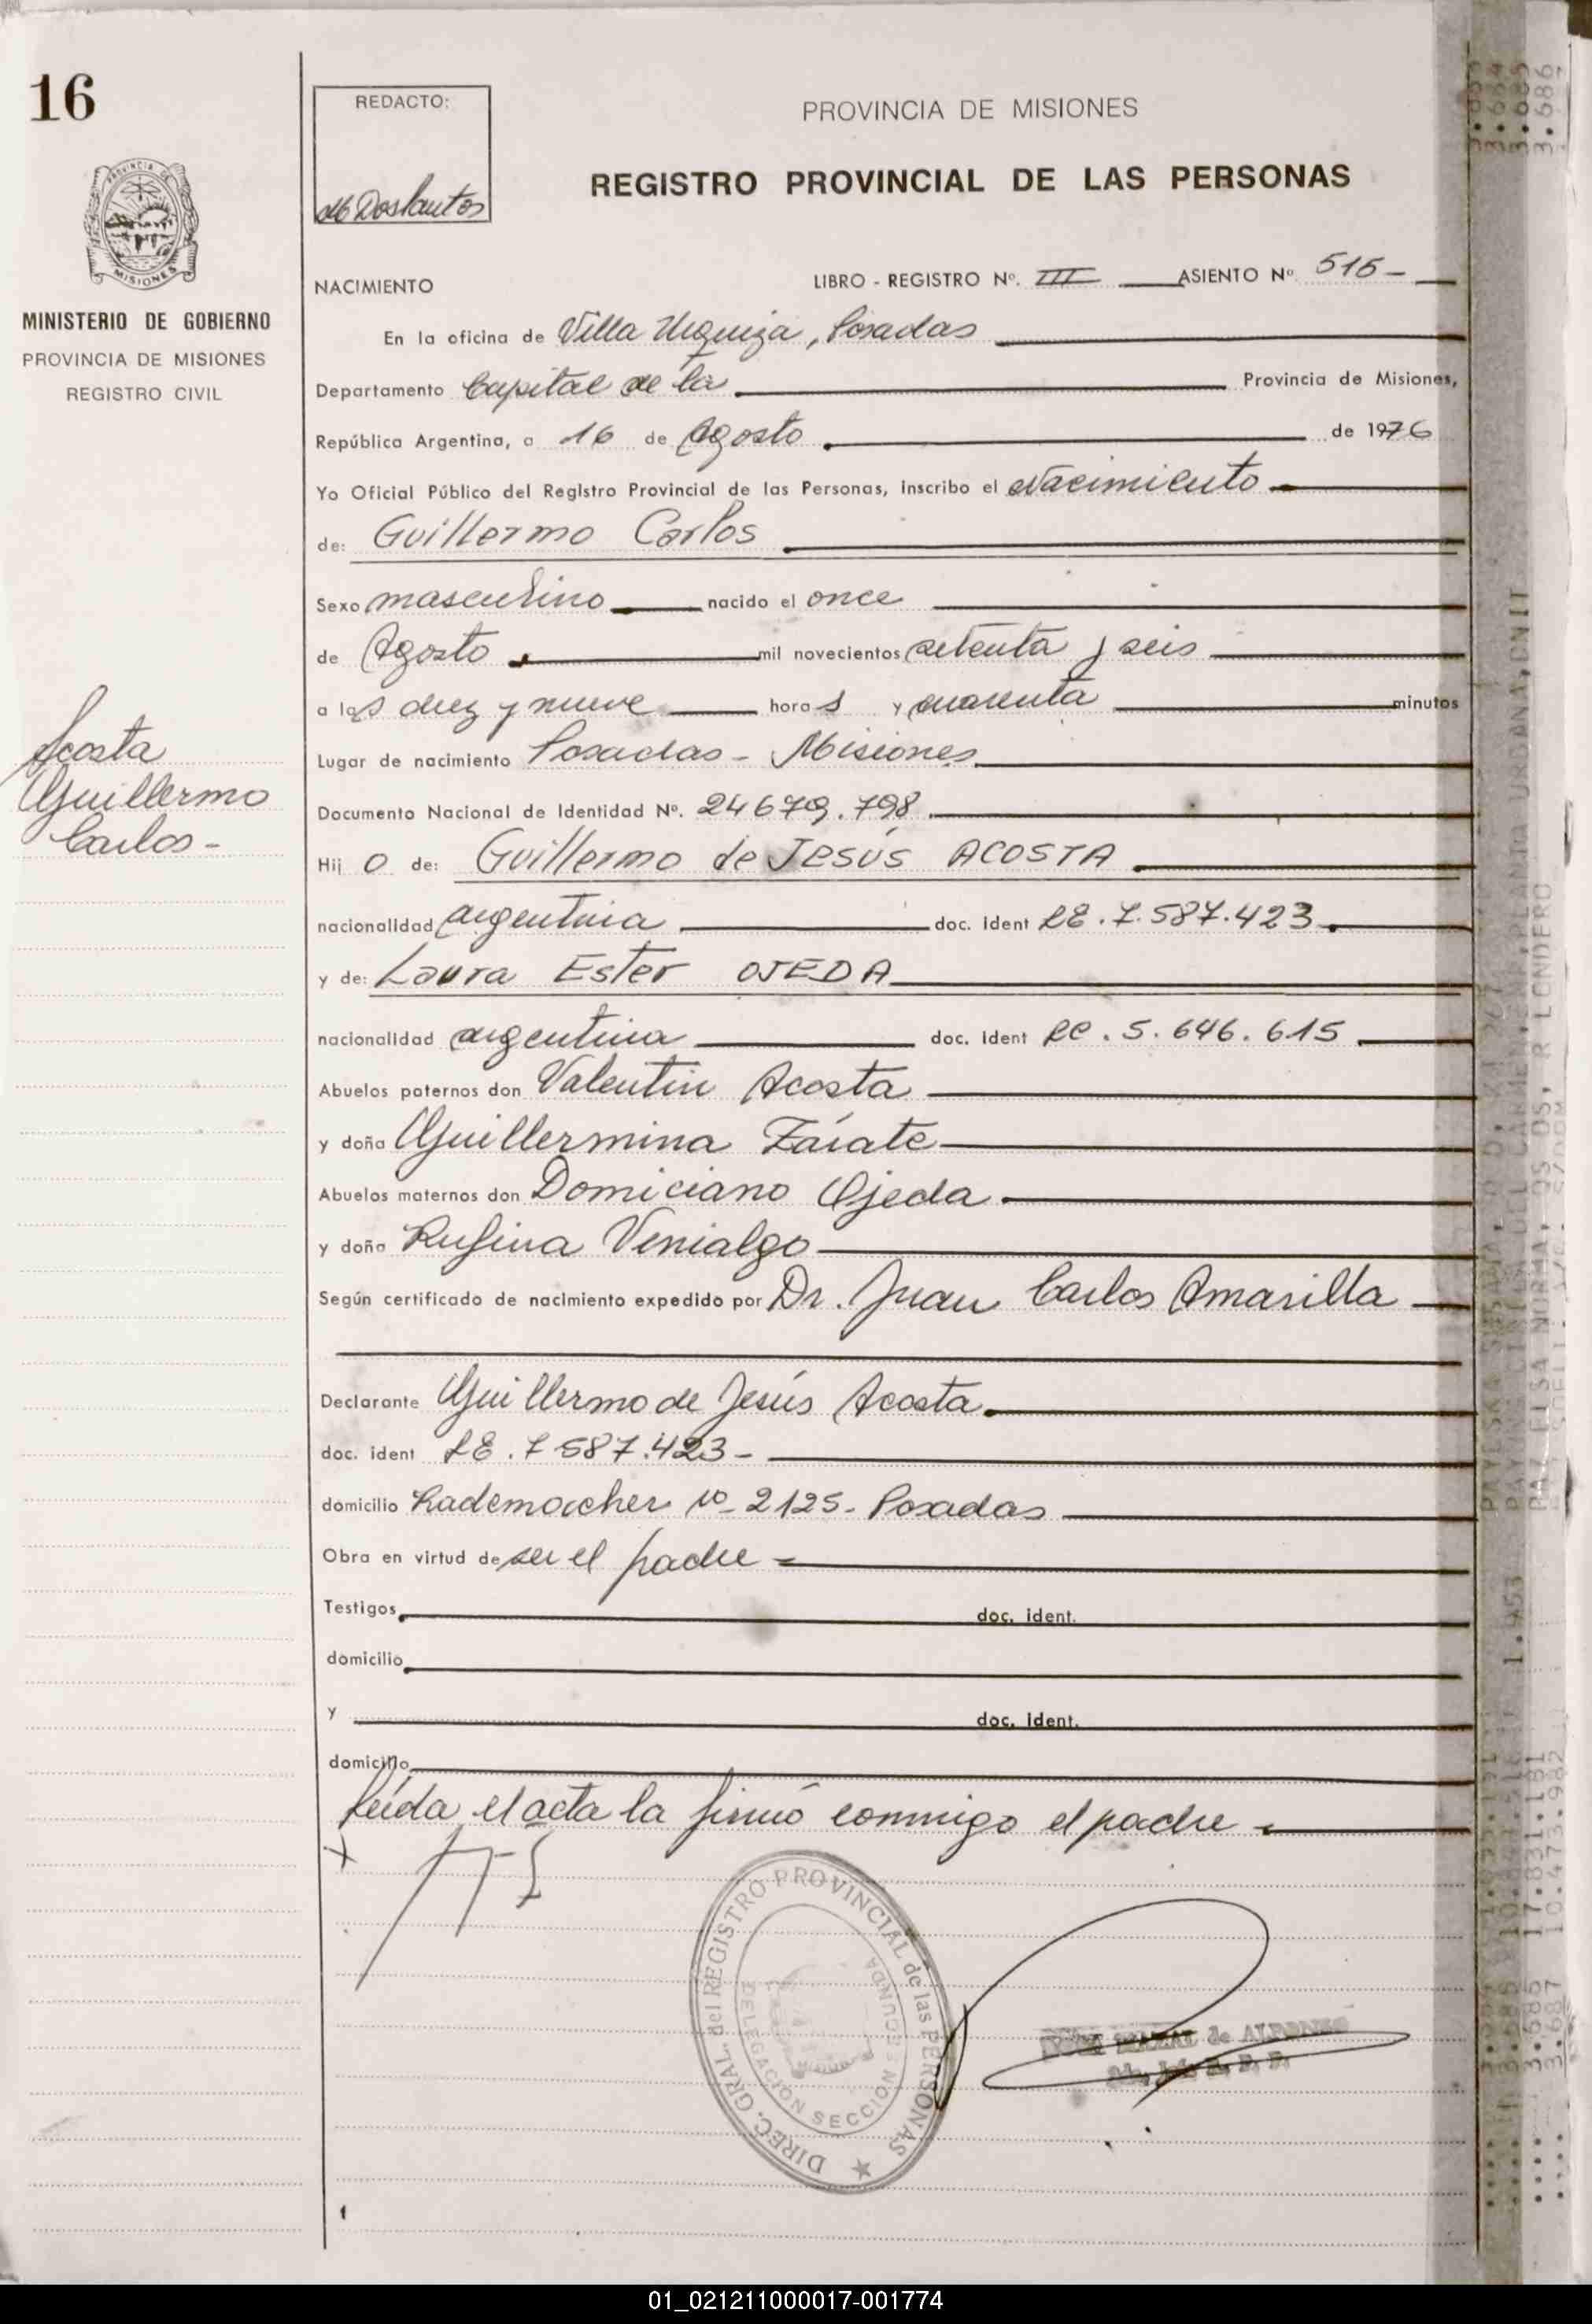 16
PROVINCIA DE
MISIONES
MINISTERIO DE GOBIERNO
PROVINCIA DE MISIONES
REGISTRO CIVIL
Acosta
Guillermo
Carlos-
REDACTO:
PROVINCIA DE MISIONES
REGISTRO PROVINCIAL DE LAS PERSONAS
NACIMIENTO LIBRO - REGISTRO Nº. III ASIENTO Nº 515-
En la oficina de Villa Urquiza, Posadas
Departamento Capital de la Provincia de Misiones,
República Argentina, a 16 de Agosto de 1976
Yo Oficial Público del Registro Provincial de las Personas, inscribo el Nacimiento
de: Guillermo Carlos
Sexo masculino nacido el once
de Agosto mil novecientos setenta y seis
a las diez y nueve horas y cuarenta minutos
Lugar de nacimiento Posadas - Misiones
Documento Nacional de Identidad Nº. 24679.798
Hijo de: Guillermo de Jesús ACOSTA
nacionalidad argentina doc. ident LE.7.587.423.
y de: Laura Ester OJEDA
nacionalidad argentina doc. ident LC.5.646.615
Abuelos paternos don Valentin Acosta
y doña Guillermina Zárate
Abuelos maternos don Domiciano Ojeda
y doña Rufina Venialgo
Según certificado de nacimiento expedido por Dr. Juan Carlos Amarilla
Declarante Guillermo de Jesús Acosta
doc. ident LE.7587.423-
domicilio Rademacher nº 2125- Posadas
Obra en virtud de ser el padre
Testigos doc. ident.
domicilio
y doc. ident.
domicilio
Leída el acta la firmó conmigo el padre
DIREC. GRAL. del REGISTRO PROVINCIAL de las PERSONAS
DELEGACION SECCION SEGUNDA
de ALFONSO
01_021211000017-001774